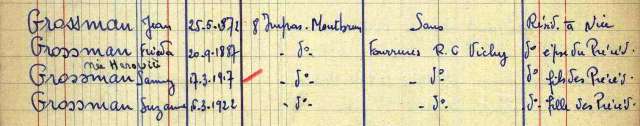 Grossman Jean 25-6-1872 8 Impas. Montbrun Sans Résid. à Nice
Grossman Frieda 20-9-1887 - d° - Fourrures R.C Vichy d° épse du Précéd.
née Harapilé
Grossman Samy 17.3.1917 - d° - - d° - d° fils des Précéd.
Grossman Suzanne 6.3-1922 - d° - - d° - d° fille des Précéd.